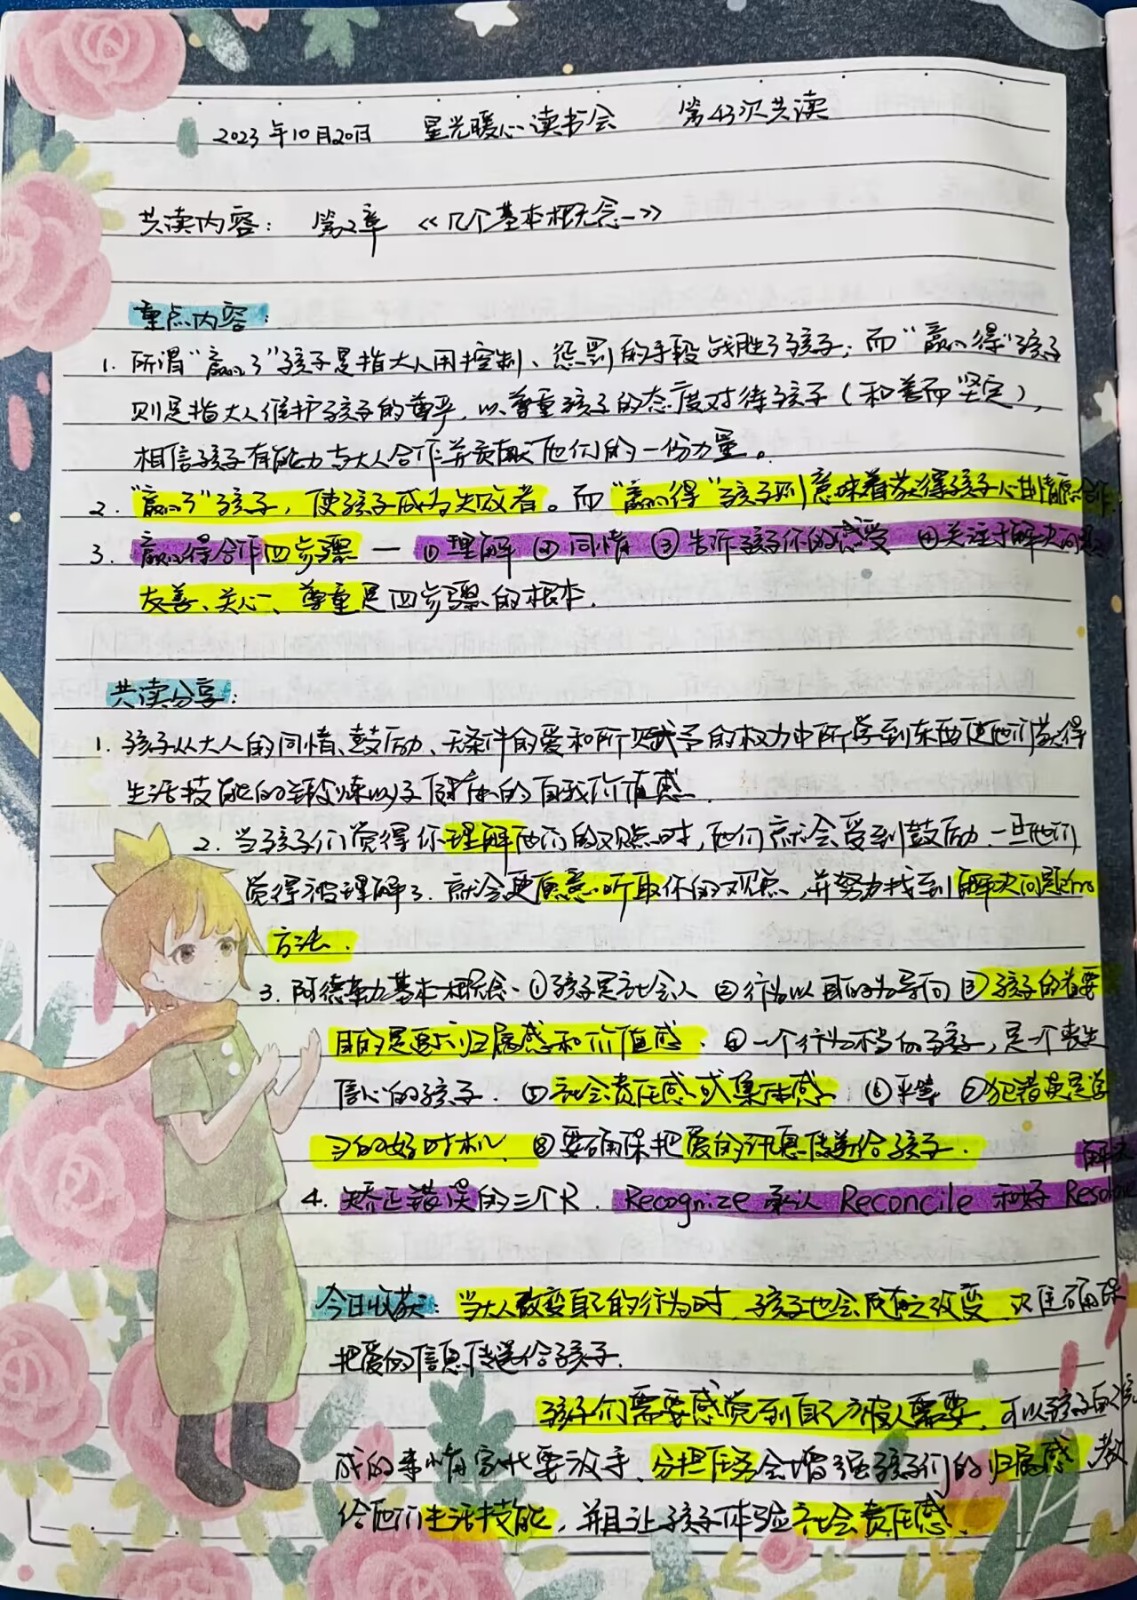 2023年10月20日 星光暖心读书会 第43次共读
共读内容: 第2章 《几个基本概念一》
重点内容:
1. 所谓"赢了"孩子是指大人用控制、惩罚的手段战胜了孩子; 而"赢得"孩子
则是指大人维护孩子的尊严, 以尊重孩子的态度对待孩子(和善而坚定),
相信孩子有能力与大人合作并贡献他们的一份力量。
2. "赢了"孩子, 使孩子成为失败者。而"赢得"孩子则意味着获得孩子心甘情愿合作.
3. 赢得合作四步骤 — ①理解 ②同情 ③告诉孩子你的感受 ④关注于解决问题
友善、关心、尊重是四步骤的根本.
共读分享:
1. 孩子从大人的同情、鼓励、无条件的爱和所赋予的权力中所学到东西使他们获得
生活技能的锻炼以及健康的自我价值感.
2. 当孩子们觉得你理解他们的观点时, 他们就会受到鼓励. 一旦他们
觉得被理解了. 就会更愿意听取你的观点, 并努力找到解决问题的
方法.
3. 阿德勒基本概念. ①孩子是社会人 ②行为以目的为导向 ③孩子的首要
目的是追求归属感和价值感. ④一个行为不当的孩子, 是一个丧失
信心的孩子. ⑤社会责任感或集体感 ⑥平等 ⑦犯错误是学
习的好时机. ⑧要确保把爱的讯息传递给孩子.
解决
4. 矫正错误的三个R. Recognize 承认 Reconcile 和好 Resolve
今日收获: 当大人改变自己的行为时, 孩子也会随之改变. 只住确保
把爱的信息传递给孩子.
孩子们需要感觉到自己被人需要. 可以孩子自
成的事情家长要放手. 分担任务会增强孩子们的归属感. 教
给他们生活技能, 并且让孩子体验社会责任感.